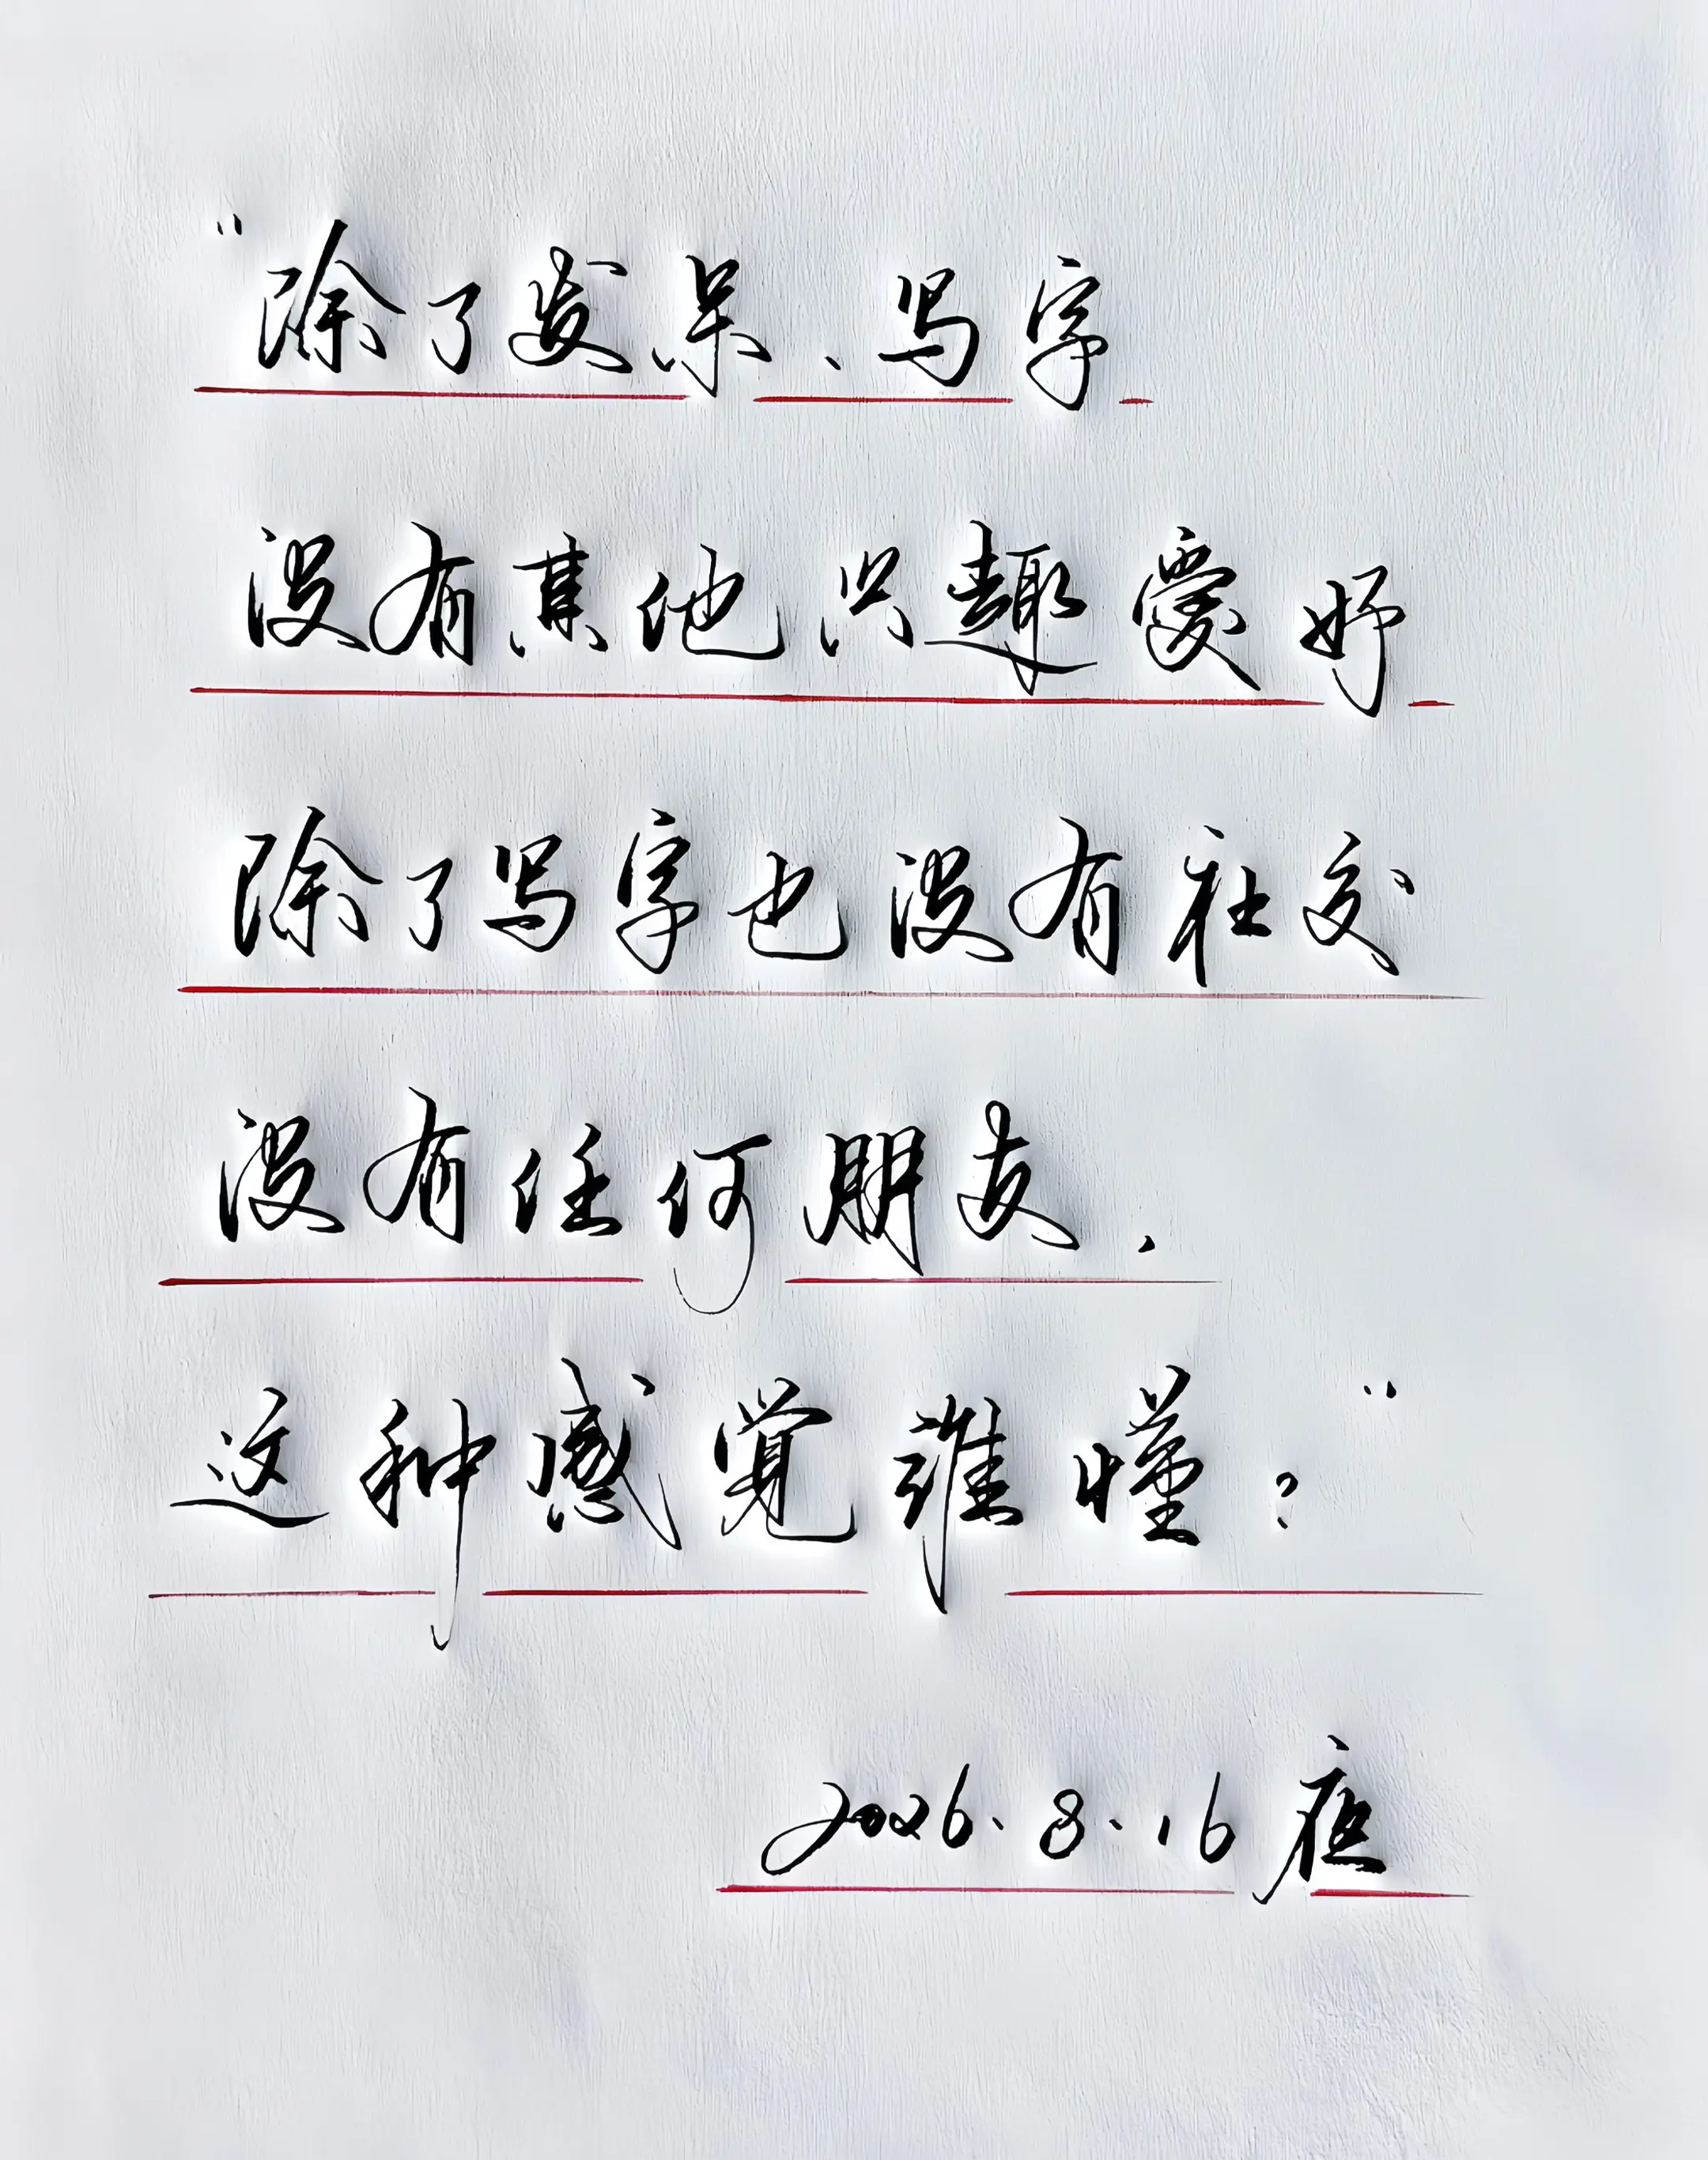 “除了发呆、写字
没有其他兴趣爱好
除了写字也没有社交
没有任何朋友，
这种感觉谁懂？”
2026.8.16夜